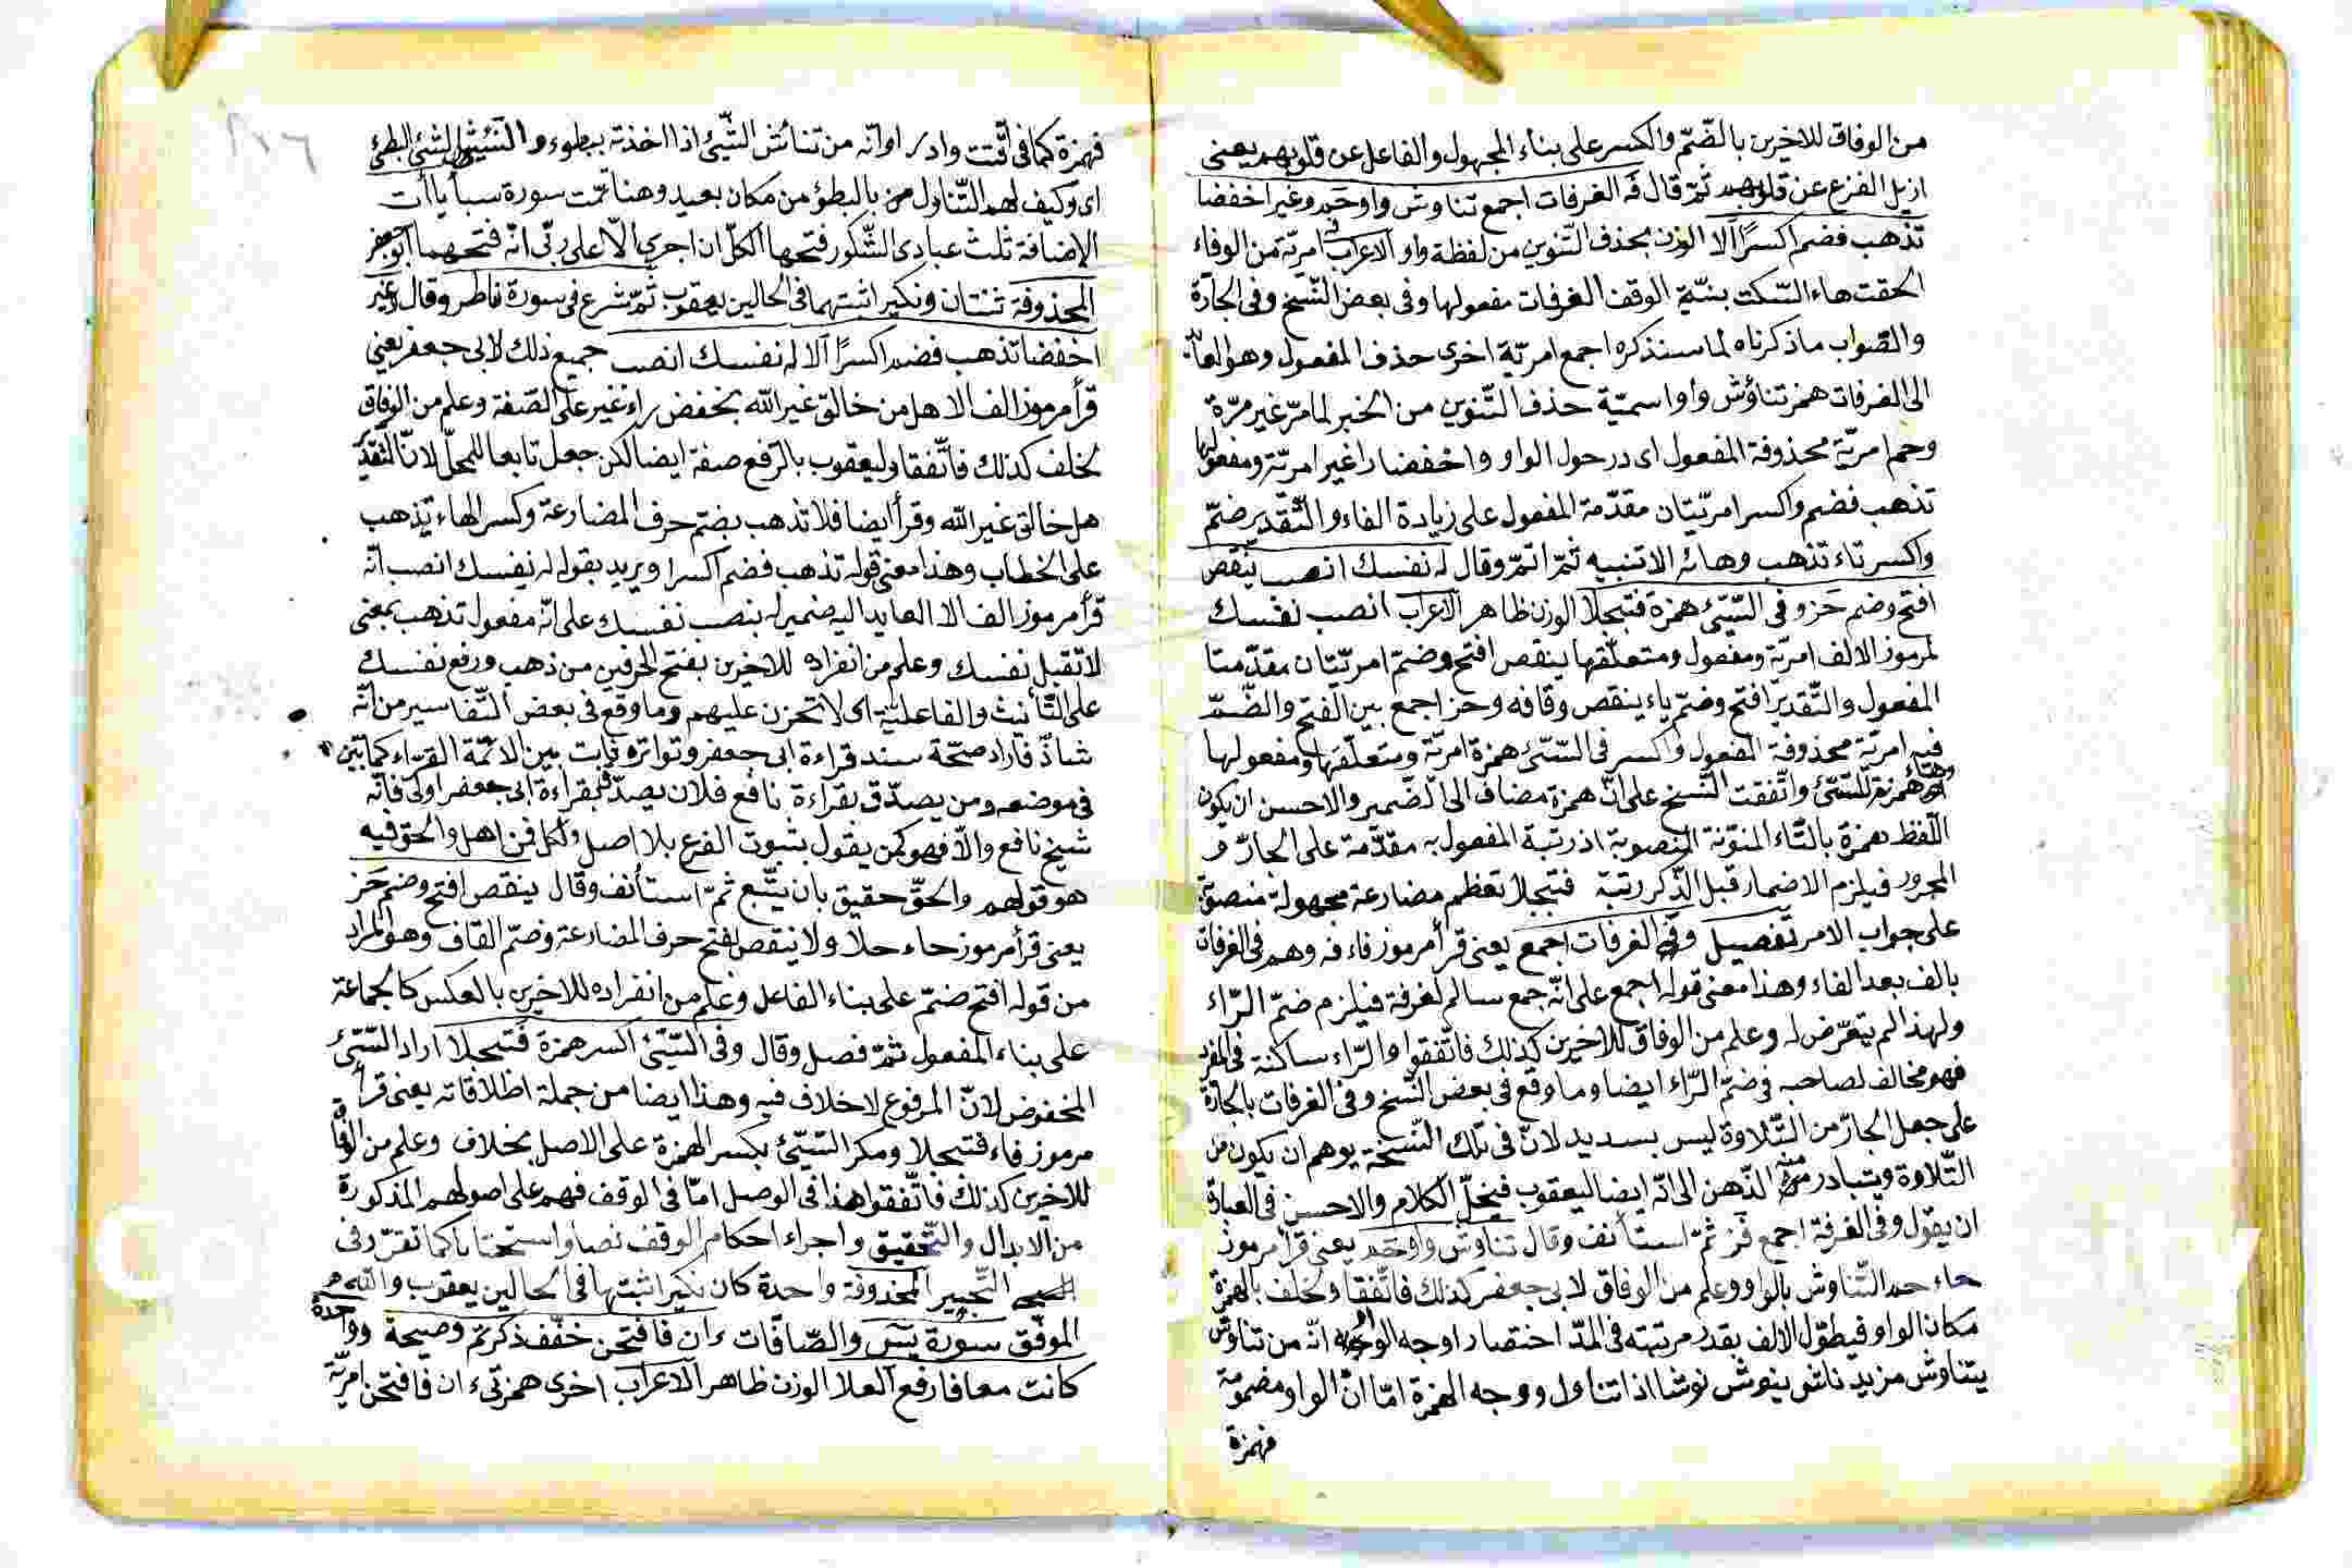 من الوفاق للاخرين بالضّمّ والكسر على بناء المجهول والفاعل عن قلوبهم يعنى
ازيل الفزع عن قلوبهم ثمّ قال فه الغرفات اجمع تناوش واوحم وغير اخفضا
تذهب فضم اكسرًا ألا الوزن بحذف التّنوين من لفظة واو الاعراب فه امريّة من الوفاء
الحقت هاء السّكت بنيّة الوقف الغرفات مفعولها وفى بعض النّسخ وفى الجارّة
والصّواب ما ذكرناه لما سنذكره اجمع امريّة اخرى حذف المفعول وهو العائد
الى الغرفات همز تناؤش واو اسميّة حذف التّنوين من الخبر لما مرّ غير مرّة
وحم امريّة محذوفة المفعول اى در حول الواو واخفضا را غير امريّة ومفعولها
تذهب فضم واكسرا امريّتان مقدّمة المفعول على زيادة الفاء والتّقدير ضمّ
واكسر تاء تذهب وهائه الا تنبيه ثمّ اتمّ وقال له نفسك انصب ينقص
افتح وضم حز وفى السّيّئ همزة فتبجلا الوزن ظاهر الاعراب انصب نفسك
لمرموز الالف امريّة ومفعول ومتعلّقها ينقص افتح وضمّ امريّتان مقدّمتا
المفعول والتّقدير افتح وضمّ ياء ينقص وقافه وحز اجمع بين الفتح والضّمّ
فيه امريّة محذوفة المفعول واكسر فى السّيّئ همزة امريّة ومتعلّقها ومفعولها
همزة للسّيّئ واتّفقت النّسخ على انّ همزة مضاف الى الضّمير والاحسن ان يكون
اللّفظ همزة بالتّاء المنوّنة المنصوبة اذ رتبة المفعول به مقدّمة على الجارّ و
المجرور فيلزم الاضمار قبل الذّكر رتبة فتبجلا تعظم مضارعة مجهولة منصوبة
على جواب الامر تفصيل وفى الغرفات اجمع يعنى قرأ مرموز فاء فه وهم فى الغرفات
بالف بعد الفاء وهذا معنى قوله اجمع على انّه جمع سالم لغرفة فيلزم ضمّ الرّاء
ولهذا لم يتعرّض له وعلم من الوفاق للاخرين كذلك فاتّفقوا والرّاء ساكنة فى المفرد
فهو مخالف لصاحبه فى ضمّ الرّاء ايضا وما وقع فى بعض النّسخ وفى الغرفات بالجارّة
على جعل الجارّ من التّلاوة ليس بسديد لانّ فى تلك النّسخة يوهم ان يكون من
التّلاوة ويتبادر منه الذّهن الى انّه ايضا ليعقوب فيخلّ الكلام والاحسن فى العبارة
ان يقول وفى الغرفة اجمع فز ثمّ استأنف وقال تناوش واوحم يعنى قرأ مرموز
حاء حم التّناوش بالواو وعلم من الوفاق لابى جعفر كذلك فاتّفقا ولخلف بالهمزة
مكان الواو فيطوّل الالف بقدر مرتبته فى المدّ اختصارا وجه الواو انّه من تناوش
يتناوش مزيد ناش ينوش نوشا اذا تناول ووجه الهمزة امّا انّ الواو مضمومة
فهمزة
فهمزة كما فى اقّتت وادر او انّه من تنائش الشّيئ اذا اخذته ببطوء و الشئ البطئ
اى وكيف لهم التّناول من بالبطؤ من مكان بعيد وهنا تمّت سورة سبأ ياأت
الاضافة ثلث عبادى الشّكور فتحها الكلّ ان اجرى الّا على ربّى انّه فتحهما ابو جعفر
المحذوفة ثنتان ونكير اثبتهما فى الحالين يعقوب ثمّ شرع فى سورة فاطر وقال وغير
اخفضا تذهب فضم اكسرًا ألا له نفسك انصب جميع ذلك لابى جعفر يعنى
قرأ مرموز الف الا هل من خالق غير اللّه بخفض راء غير على الصّفة وعلم من الوفاق
لخلف كذلك فاتّفقا وليعقوب بالرّفع صفة ايضا لكن جعل تابعا للمحلّ لانّ التّقدير
هل خالق غير اللّه وقرأ ايضا فلا تذهب بضمّ حرف المضارعة وكسر الهاء يذهب
على الخطاب وهذا معنى قوله تذهب فضم اكسرا ويريد بقوله له نفسك انصب انّه
قرأ مرموز الف الا العايد اليه ضمير له بنصب نفسك على انّه مفعول تذهب بمعنى
لا تقبل نفسك وعلم من انفراده للاخرين بفتح الحرفين من ذهب ورفع نفسك
على التّأنيث والفاعليّة اى لا تحزن عليهم وما وقع فى بعض التّفاسير من انّه
شاذّ فاراد صحّة سند قراءة ابى جعفر وتواتره ثابت بين الائمّة القرّاء كما بيّن
فى موضعه ومن يصدّق بقراءة نافع فلان يصدّق بقراءة ابى جعفر اولى فانّه
شيخ نافع والّا فهو كمن يقول بثبوت الفرع بلا اصل ولكل فن اهل والحق فيه
هو قولهم والحقّ حقيق بان يتّبع ثمّ استأنف وقال ينقص افتح وضم حز
يعنى قرأ مرموز حاء حلا ولا ينقص بفتح حرف المضارعة وضمّ القاف وهو المراد
من قوله افتح ضمّ على بناء الفاعل وعلم من انفراده للاخرين بالعكس كالجماعة
على بناء المفعول ثمّ فصل وقال وفى السّيّئ اكسر همزة فتبجلا اراد السّيّئ
المخفوض لانّ المرفوع لا خلاف فيه وهذا ايضا من جملة اطلاقاته يعنى قرأ
مرموز فاء فتبجلا ومكر السّيّئ بكسر الهمزة على الاصل بخلاف وعلم من الوفاق
للاخرين كذلك فاتّفقوا هذا فى الوصل امّا فى الوقف فهم على اصولهم المذكورة
من الابدال والتّحقيق واجراء احكام الوقف نصا واستحبابا كما تقرّر فى
التّحبير المحذوفة واحدة كان نكير اثبتها فى الحالين يعقوب واللّه هو
الموفّق سورة يس والصّافّات ءان فافتحن خفّف ذكرتم وصيحة وواحدة
كانت معا فارفع العلا الوزن ظاهر الاعراب اخرى همزتىء ان فافتحن امريّة